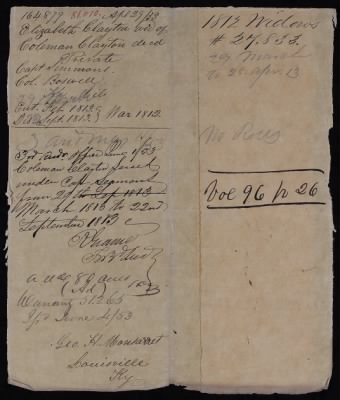 164879 81,010, Apl 29/53
Elizabeth Clayton wid of
Coleman Clayton decd
Private
Capt Simmons
Col. Boswell
Ent. Sept 1812
Died Sept. 1813 War 1812
3d Audr Office
Coleman Clayton served
under Capt Simmons
from 29th Sep 1813
March 1813 to 22nd
September 1813
3rd Aud
a 80 acres
(Ad.)
Warrant 31265
June 4/53
Geo. H. Monsarrat
Louisville
Ky.
1812 Widows
# 27.833
29 March
to 22 Sept 13
No Rolls
Vol 96 p 26